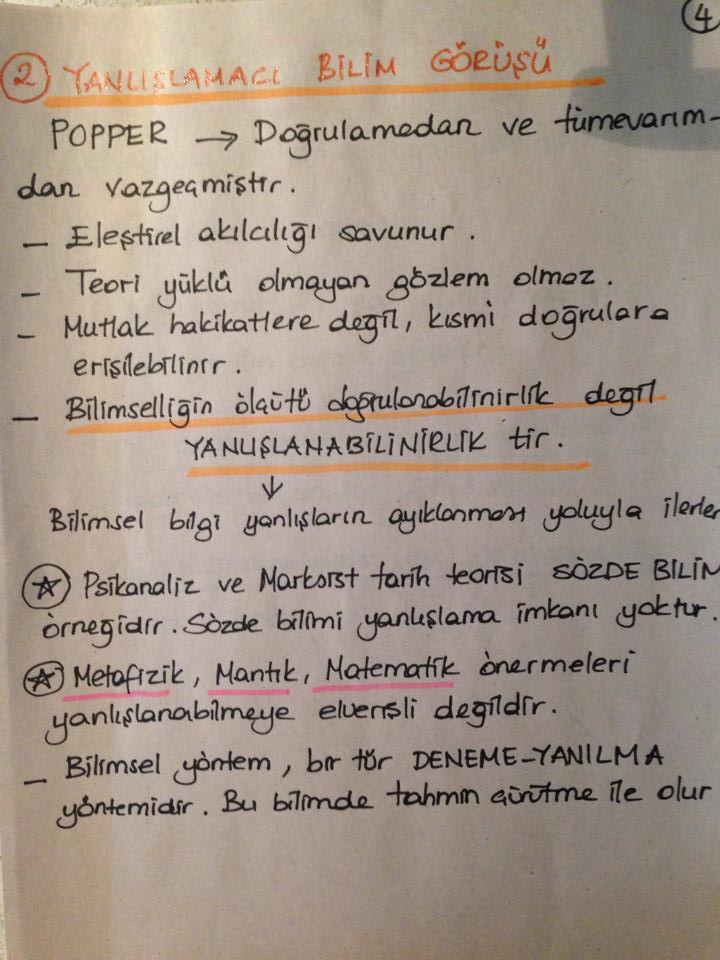 4
2 YANLIŞLAMACI BİLİM GÖRÜŞÜ
POPPER → Doğrulamadan ve tümevarım-
dan vazgeçmiştir.
– Eleştirel akılcılığı savunur.
– Teori yüklü olmayan gözlem olmaz.
– Mutlak hakikatlere değil, kısmi doğrulara
erişilebilinir.
– Bilimselliğin ölçütü doğrulanabilinirlik değil
YANLIŞLANABİLİNİRLİK tir.
↓
Bilimsel bilgi yanlışların ayıklanması yoluyla ilerler
☆ Psikanaliz ve Marksist tarih teorisi SÖZDE BİLİM
örneğidir. Sözde bilimi yanlışlama imkanı yoktur.
☆ Metafizik, Mantık, Matematik önermeleri
yanlışlanabilmeye elverişli değildir.
– Bilimsel yöntem, bir tür DENEME-YANILMA
yöntemidir. Bu bilimde tahmin çürütme ile olur